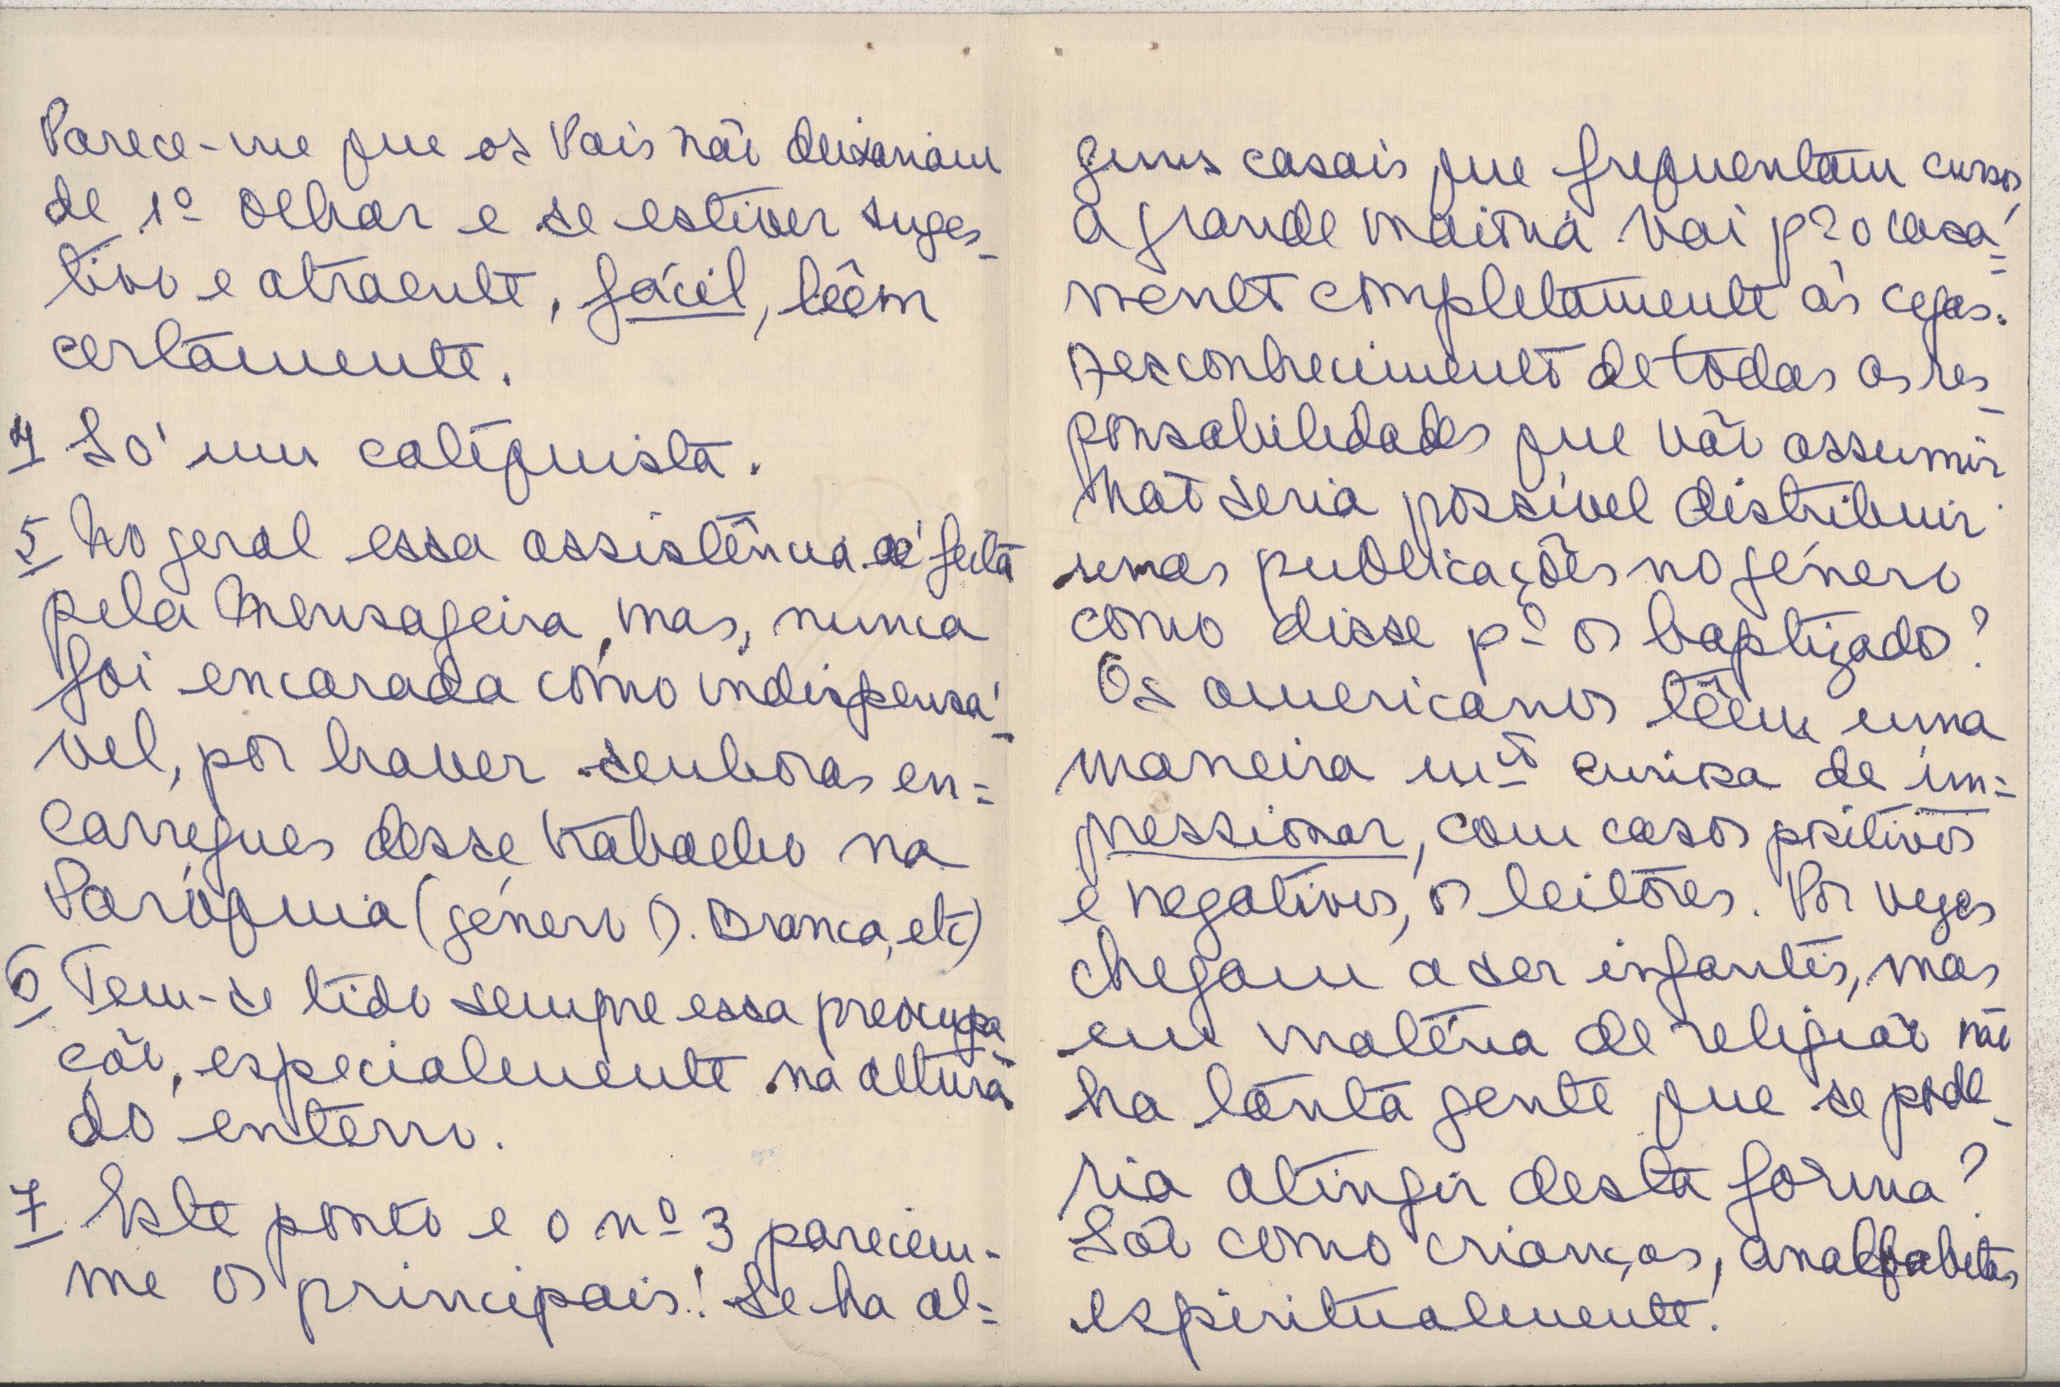 Parece-me que os Pais não deixariam
de 1º olhar e se estiver suges-
tivo e atraente, fácil, lêem
certamente.
4 Só um catequista.
5 No geral essa assistência é feita
pela Mensageira, mas, nunca
foi encarada como indispensá-
vel, por haver senhoras en=
carregues desse trabalho na
Paróquia (género D. Branca, etc)
6 Tem-se tido sempre essa preocupa-
ção, especialmente na altura
do enterro.
7 Este ponto e o nº 3 parecem-
me os principais! Se ha al=
guns casais que frequentam cursos,
a grande maioria vai pº o casa=
mento completamente às cegas.
Desconhecimento de todas as res-
ponsabilidades que vão assumir
Não seria possível distribuir
umas publicações no género
como disse pº os baptizados?
Os americanos têem uma
maneira mtº curiosa de im=
pressionar, com casos positivos
e negativos, os leitores. Por vezes
chegam a ser infantis, mas
em matéria de religião não
ha tanta gente que se pode-
ria atingir desta forma?
São como crianças, analfabetas
espiritualmente!